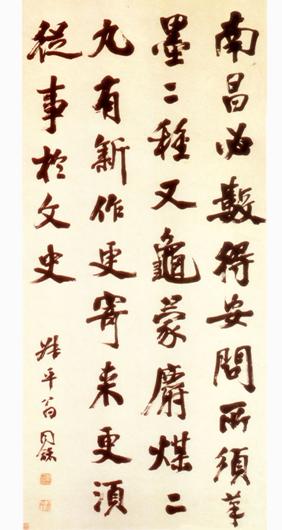 南昌必數得安問所須筆
墨二種又龜蒙麝煤二
丸有新作更寄來更須
從事於文史
瓶平翁同龢